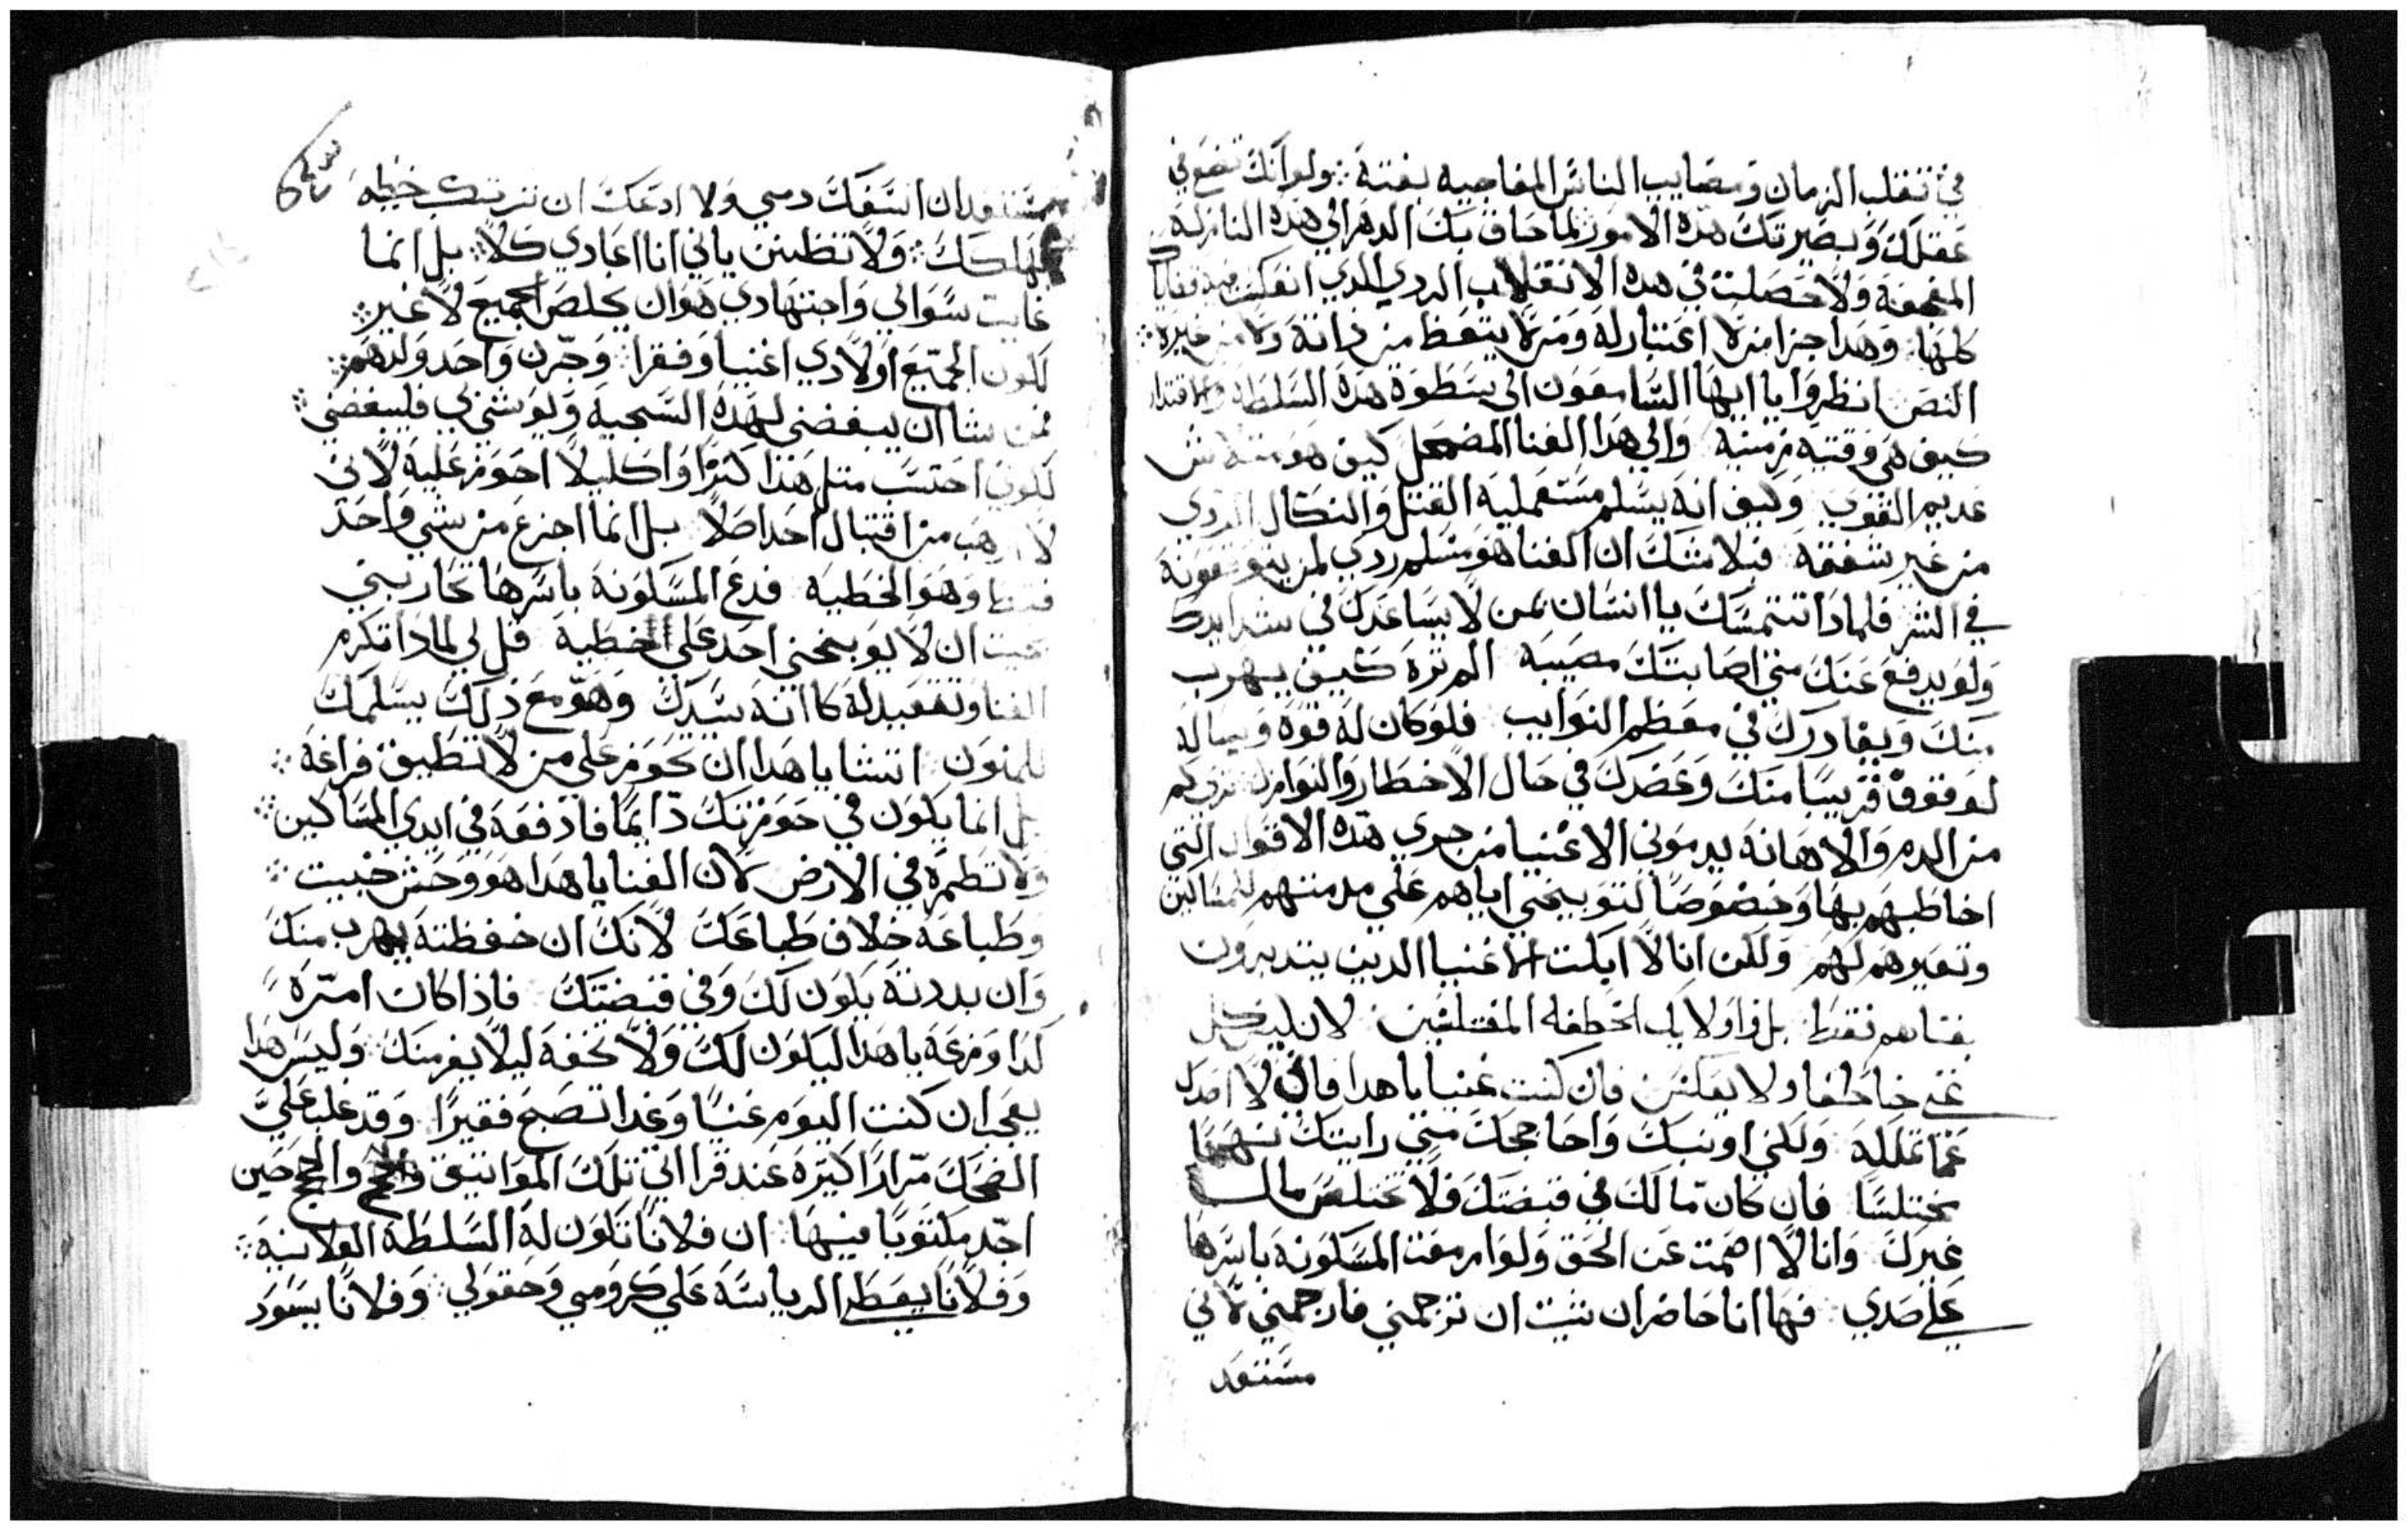 في تقلب الزمان ومصايب الناس المفاجيه بغتة ∴ ولو انك تضع في
عقلك وبصيرتك هذه الامور لما حاق بك الدهر الي هذه النازلة
المجحفة ولا حصلت في هذه الانقلاب الردي الذي انعكست فيه
كلها ∴ وهذا جزا من لا اعتبار له ومن لا يتعظ من ذاته ولا من غيره ∴
النص انظروا يا ايها السامعون الي سطوة هذه السلطة والاقتدار
كيف هي وقتيه زمنيه والي هذا الغنا المضمحل كيف هو متلاش
عديم القوي وكيف انه يسلم مستعمليه القتل والنكال الردي
من غير شفقة فبلا شك ان الغنا هو مسلم ردي لمن
في الشر فلماذا تتمسك يا انسان بمن لا يساعدك في شدايدك
ولو يدفع عنك متي اصابتك مصيبة الم تره كيف يهرب
منك ويغادرك في معظم النوايب فلو كان له قوة وبسالة
لوقف قريبا منك وعضدك في حال الاخطار والنوازل
من الذم والاهانة يدموني الاغنيا من جري هذه الاقوال التي
اخاطبهم بها وخصوصا لتوبيخي اياهم علي مدمتهم للمساكين
وتعيرهم لهم ولكن انا لا ابكت الاغنيا الدين يتدبرون
بغناهم فقط بل واوليك الخطفه المختلسين لان ليس كل
غني خاطفا ولا بعكس فان كنت غنيا يا هدا فاني لا اصدك
عما تملكه ولكني اوبنك واحاججك متي رايتك نهما
مختلسا فان كان مالك في قبضتك فلا تختلس مال
غيرك وانا لا اصمت عن الحق ولو المسكونة باسرها
علي ضدي فها انا حاضر ان شيت ان ترجمني فارجمني لاني
مستعد
مستعد ان اسفك دمي ولا ادعك ان ترتكب خطيه
تهلكك ∴ ولا تظنن باني انا اعادي كلا ∴ بل انما
غايت سوالي واجتهادي هو ان يخلص الجميع لا غير ∴
لكون الجميع اولادي اغنيا وفقرا ∴ وجرن واحد ولدهم ∴
فمن شا ان يبغضني لهذه السجية ولو شي بي فليبغضني ∴
لكوني احتسب مثل هذا كنزا واكليلا احوز عليه لاني
لا ارهب من اقتبال احد اصلا بل انما اجزع من شي واحد
فقط وهو الخطيه فدع المسكونة باسرها تحاربني
بحيت ان لا يوبخني احد علي الخطية قل لي لمادا تكرم
الغنا وتتعبد له كانه سيدك وهو مع ذلك يسلمك
للمنون اتشا يا هدا ان تحوز علي من لا تطيق فراغه ∴
بل انما يكون في حوزتك دايما فادفعه في ايدي المساكين ∴
ولا تطمره في الارض لان الغنا يا هدا هو وحش خبيت ∴
وطباعه خلاف طباعك لانك ان حفظته يهرب منك
وان بددته يكون لك وفي قبضتك فاذا كان امره
كدا وزعه يا هدا ليكون لك ولا تخفه ليلا يفر منك ∴ وليس هدا
بعجب ان كنت اليوم غنيا وغدا تصبح فقيرا وقد غلب علي
الضحك مرارا كتيره عند قراتي تلك المواتيق والحجج حين
اجد مكتوبا فيها ∴ ان فلانا تكون له السلطة الفلانية ∴
وفلانا يعطي الرياسة علي كرومي وحقولي ∴ وفلانا يسود